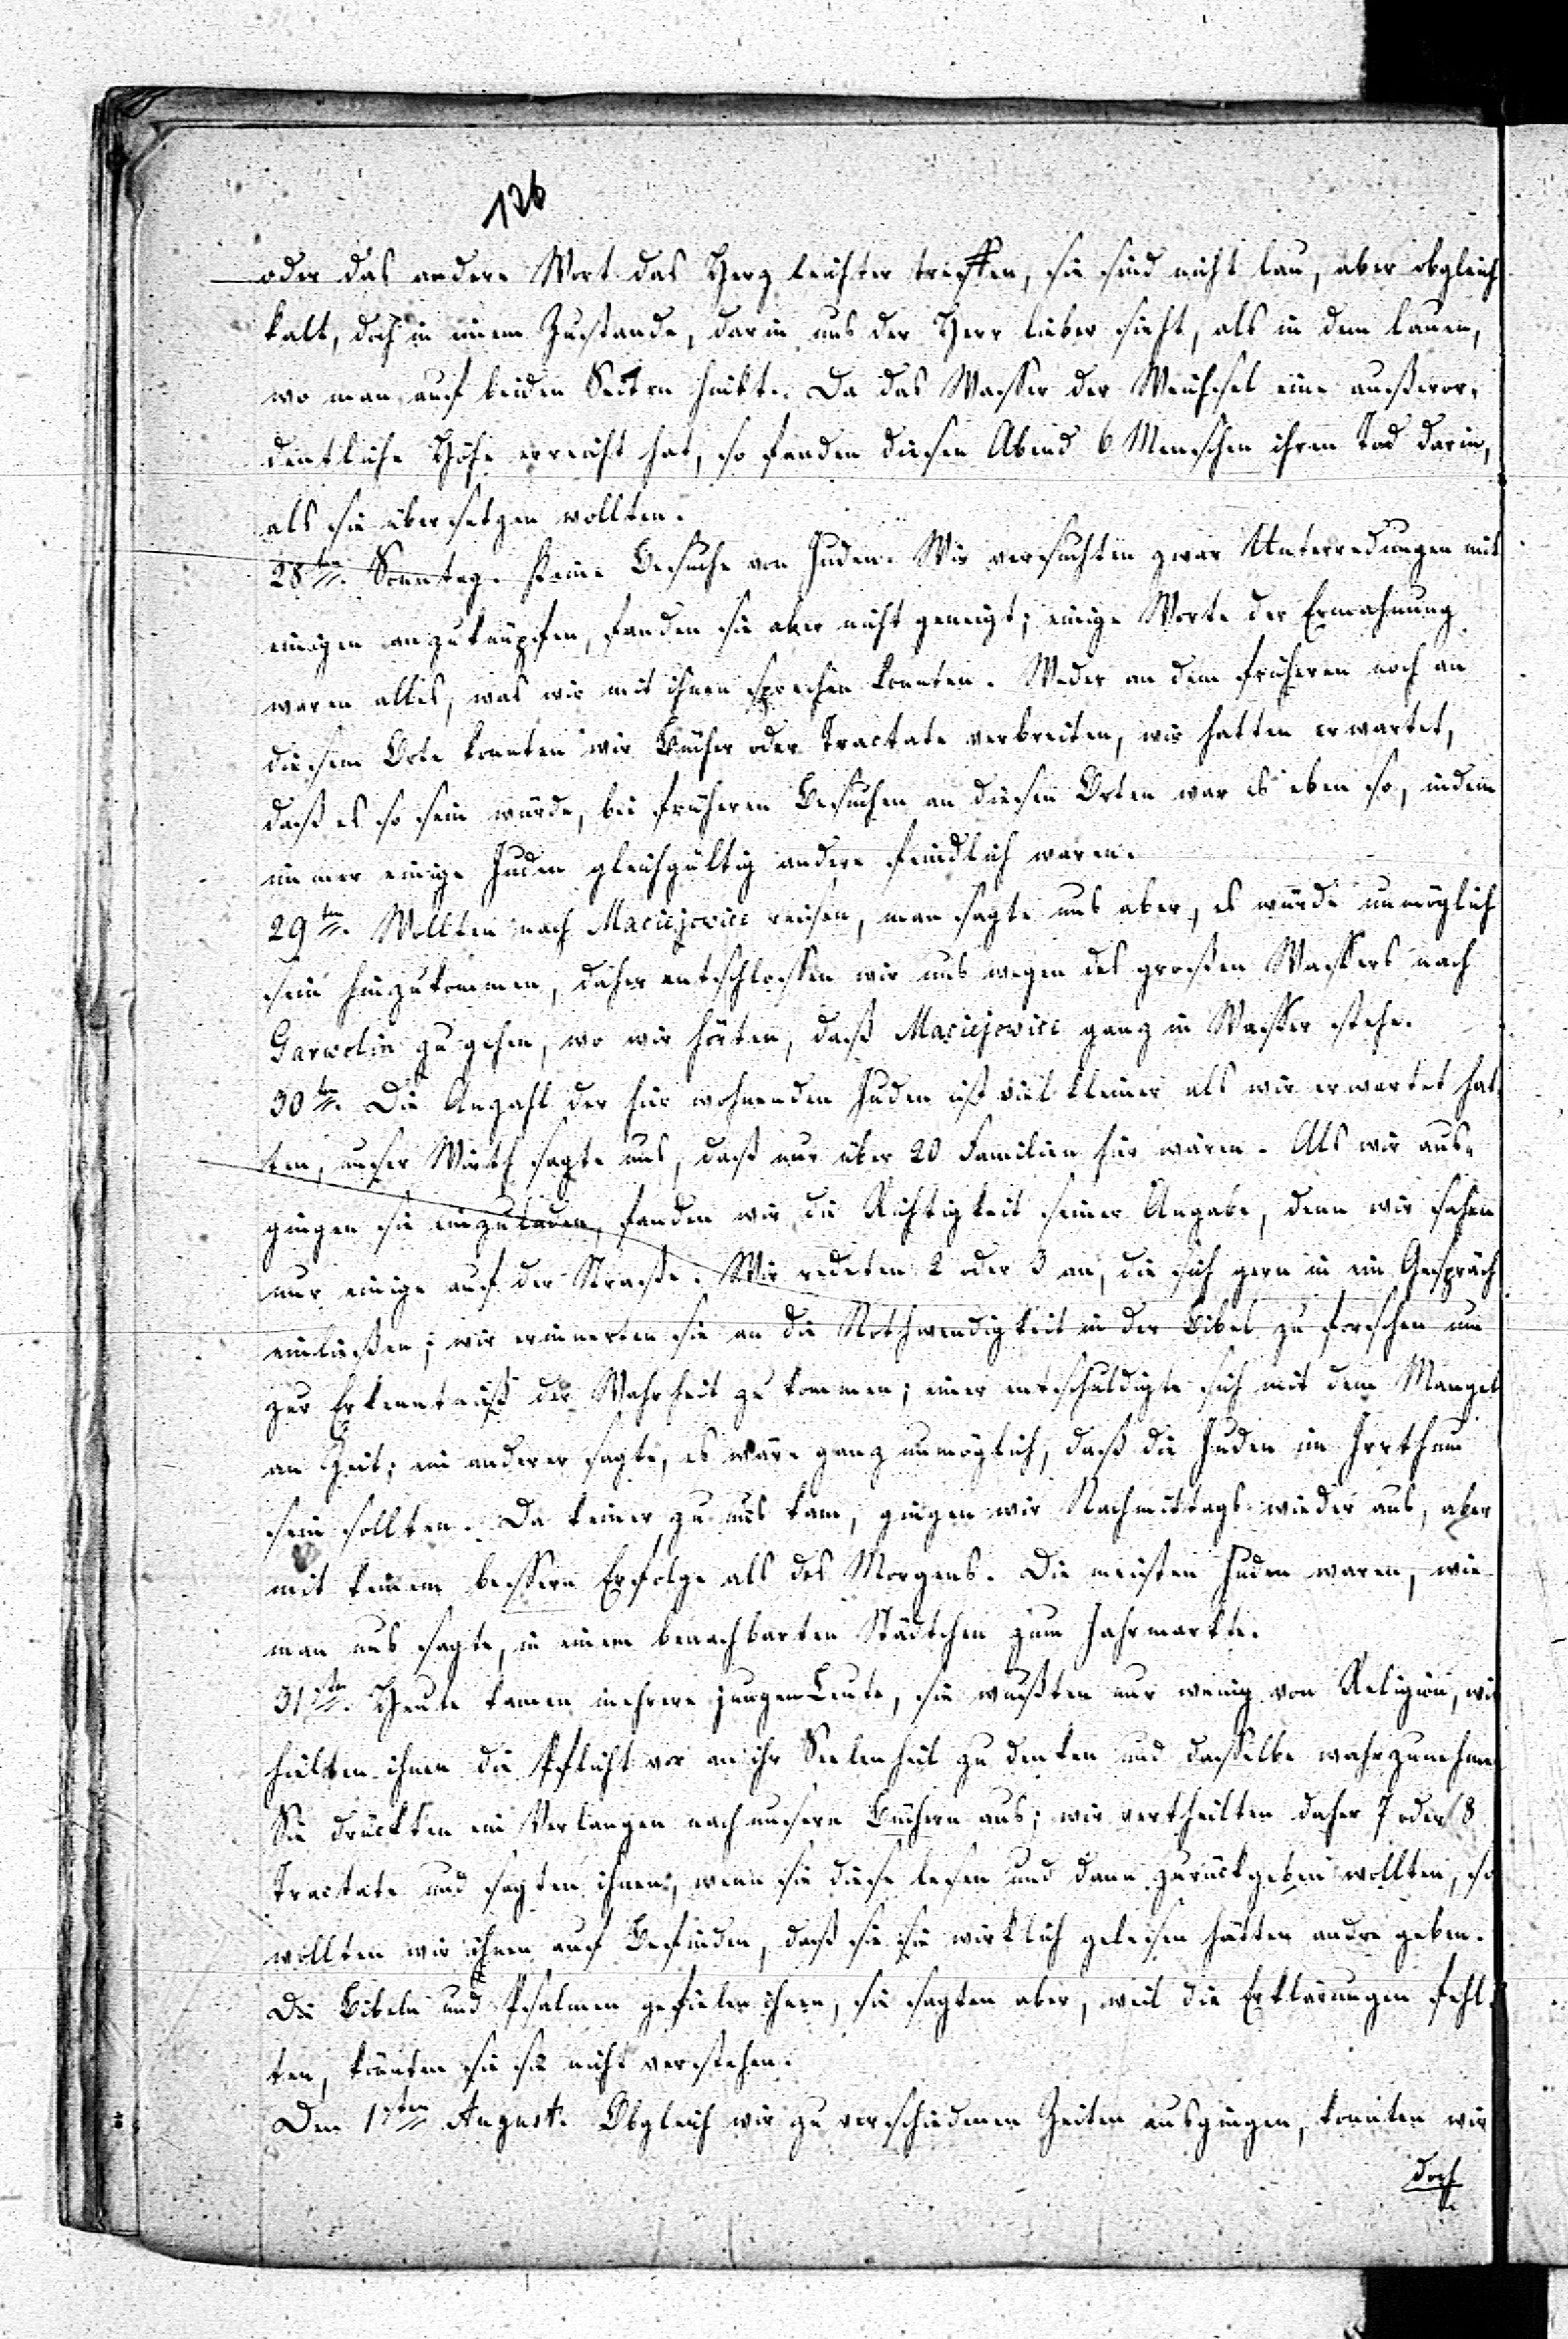 126
oder das andere Wort das Herz leichter treffen, sie sind nicht lau, aber obgleich
kalt, doch in einem Zustande, darin uns der Herr lieber sieht, als in dem lauen,
wo man auf beiden Seiten hinkt. Da das Wasser der Weichsel eine außeror-
dentliche Höhe erreicht hat, so fanden diesen Abend 6 Menschen ihren Tod darin,
als sie übersetzen wollten.
28ten. Sonntag. Keine Besuche von Juden. Wir versuchten zwar Unterredungen mit
einigen anzuknüpfen, fanden sie aber nicht geneigt; einige Worte der Ermahnung
waren alles, was wir mit ihnen sprechen konnten. Weder an dem früheren noch an
diesem Orte konnten wir Bücher oder Tractate verbreiten, wir hatten erwartet,
daß es so sein würde, bei früheren Besuchen an diesen Orten war es eben so, indem
immer einige Juden gleichgültig andere feindlich waren.
29ten. Wollten nach Maciejovice reisen, man sagte uns aber, es würde unmöglich
sein hinzukommen, daher entschlossen wir uns wegen des großen Wassers nach
Garwolin zu gehen, wo wir hörten, daß Maciejovice ganz in Wasser stehe.
30ten. Die Anzahl der hier wohnenden Juden ist viel kleiner als wir erwartet hat-
ten, unser Wirth sagte uns, daß nur über 20 Familien hier wären. Als wir aus-
gingen sie einzuladen, fanden wir die Richtigkeit seiner Angabe, denn wir sahen
nur einige auf der Straße. Wir redeten 2 oder 3 an, die sich gern in ein Gespräch
einließen; wir erinnerten sie an die Nothwendigkeit in der Bibel zu forschen um
zur Erkenntniß der Wahrheit zu kommen; einer entschuldigte sich mit dem Mangel
an Zeit; ein anderer sagte, es wäre ganz unmöglich, daß die Juden im Irrthum
sein sollten. Da keiner zu uns kam, gingen wir Nachmittags wieder aus, aber
mit keinem bessern Erfolge als des Morgens. Die meisten Juden waren, wie
man uns sagte, in einem benachbarten Städtchen zum Jahrmarkte.
31sten. Heute kamen mehrere jungen Leute, sie wußten nur wenig von Religion, wir
hielten ihnen die Pflicht vor an ihr Seelenheil zu denken und dasselbe wahrzunehmen
Sie drückten ein Verlangen nach unsern Büchern aus; wir vertheilten daher 7 oder 8
Tractate und sagten ihnen, wenn sie diese lesen und dann zurückgeben wollten, so
wollten wir ihnen auf Befinden, daß sie sie wirklich gelesen hätten andre geben.
Die Bibeln und Psalmen gefielen ihnen, sie sagten aber, weil die Erklärungen fehl-
ten, könnten sie sie nicht verstehen.
Den 1sten August. Obgleich wir zu verschiedenen Zeiten ausgingen, konnten wir
doch